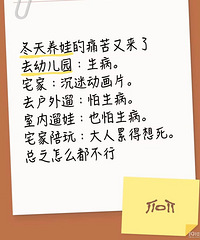 冬天养娃的痛苦又来了
去幼儿园：生病。
宅家：沉迷动画片。
去户外遛：怕生病。
室内遛娃：也怕生病。
宅家陪玩：大人累得想死。
总之怎么都不行